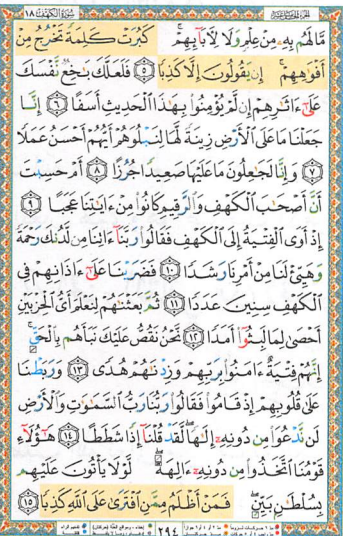 سورة الكهف ١٨
مَّالَهُم بِهِۦ مِنْ عِلْمٍ وَلَا لِآبَآئِهِمْ ۚ كَبُرَتْ كَلِمَةً تَخْرُجُ مِنْ
أَفْوَاهِهِمْ ۚ إِن يَقُولُونَ إِلَّا كَذِبًا ٥ فَلَعَلَّكَ بَٰخِعٌ نَّفْسَكَ
عَلَىٰٓ ءَاثَٰرِهِمْ إِن لَّمْ يُؤْمِنُوا۟ بِهَٰذَا ٱلْحَدِيثِ أَسَفًا ٦ إِنَّا
جَعَلْنَا مَا عَلَى ٱلْأَرْضِ زِينَةً لَّهَا لِنَبْلُوَهُمْ أَيُّهُمْ أَحْسَنُ عَمَلًا
٧ وَإِنَّا لَجَٰعِلُونَ مَا عَلَيْهَا صَعِيدًا جُرُزًا ٨ أَمْ حَسِبْتَ
أَنَّ أَصْحَٰبَ ٱلْكَهْفِ وَٱلرَّقِيمِ كَانُوا۟ مِنْ ءَايَٰتِنَا عَجَبًا ٩
إِذْ أَوَى ٱلْفِتْيَةُ إِلَى ٱلْكَهْفِ فَقَالُوا۟ رَبَّنَآ ءَاتِنَا مِن لَّدُنكَ رَحْمَةً
وَهَيِّئْ لَنَا مِنْ أَمْرِنَا رَشَدًا ١٠ فَضَرَبْنَا عَلَىٰٓ ءَاذَانِهِمْ فِى
ٱلْكَهْفِ سِنِينَ عَدَدًا ١١ ثُمَّ بَعَثْنَٰهُمْ لِنَعْلَمَ أَىُّ ٱلْحِزْبَيْنِ
أَحْصَىٰ لِمَا لَبِثُوٓا۟ أَمَدًا ١٢ نَّحْنُ نَقُصُّ عَلَيْكَ نَبَأَهُم بِٱلْحَقِّ ۚ
إِنَّهُمْ فِتْيَةٌ ءَامَنُوا۟ بِرَبِّهِمْ وَزِدْنَٰهُمْ هُدًى ١٣ وَرَبَطْنَا
عَلَىٰ قُلُوبِهِمْ إِذْ قَامُوا۟ فَقَالُوا۟ رَبُّنَا رَبُّ ٱلسَّمَٰوَٰتِ وَٱلْأَرْضِ
لَن نَّدْعُوَا۟ مِن دُونِهِۦٓ إِلَٰهًا ۖ لَّقَدْ قُلْنَآ إِذًا شَطَطًا ١٤ هَٰٓؤُلَآءِ
قَوْمُنَا ٱتَّخَذُوا۟ مِن دُونِهِۦٓ ءَالِهَةً ۖ لَّوْلَا يَأْتُونَ عَلَيْهِم
بِسُلْطَٰنٍۭ بَيِّنٍ ۖ فَمَنْ أَظْلَمُ مِمَّنِ ٱفْتَرَىٰ عَلَى ٱللَّهِ كَذِبًا ١٥
٢٩٤